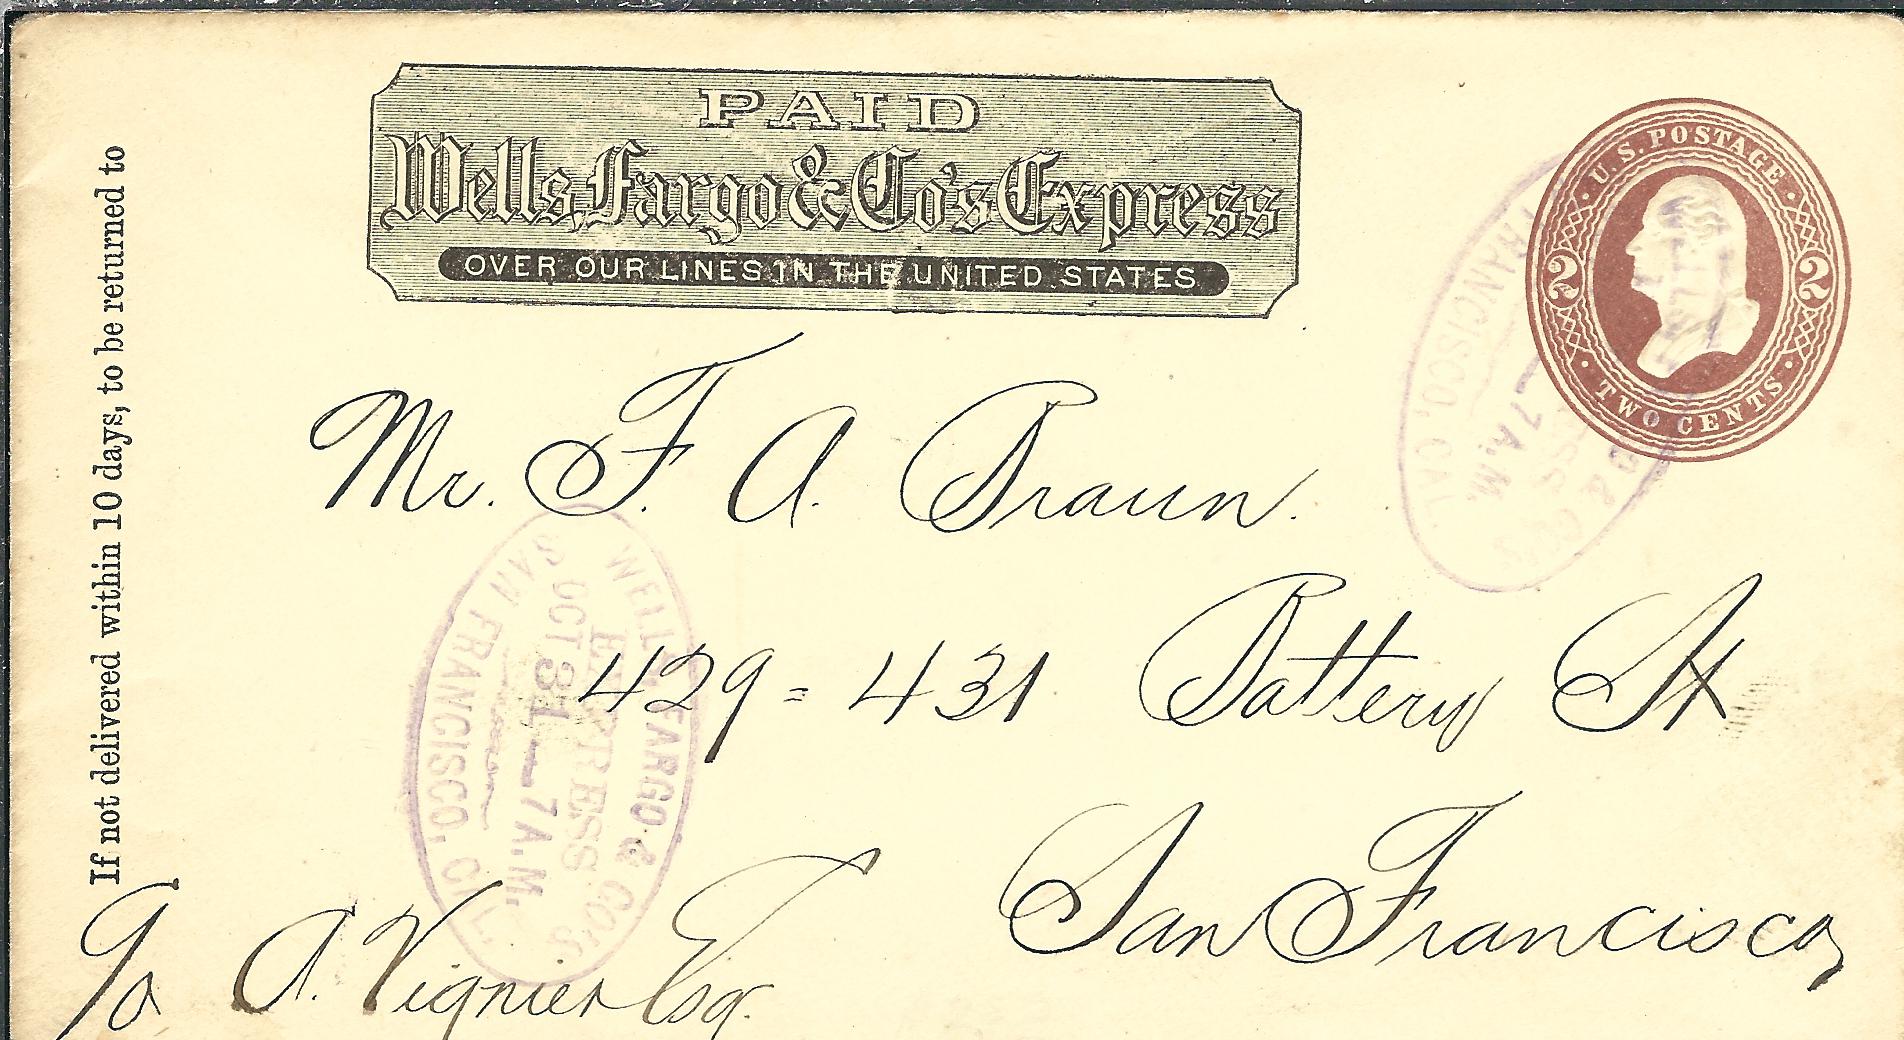 PAID
Wells, Fargo & Co's Express
OVER OUR LINES IN THE UNITED STATES
U.S. POSTAGE
2 2
TWO CENTS
FRANCISCO, CAL.
7 A.M.
If not delivered within 10 days, to be returned to
Mr. F. A. Braun.
429 = 431 Battery St
San Francisco,
c/o A. Vignier Esq.
WELLS, FARGO & CO'S
EXPRESS
OCT 31 — 7 A.M.
SAN FRANCISCO, CAL.